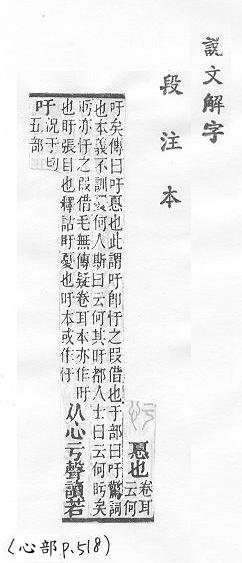 說文解字
段注本
𢝊也
卷耳
云何
吁矣傳曰吁𢝊也此謂吁卽𢖳之叚借也于部曰吁驚詞
也本義不訓𢝊何人斯曰云何其盱都人士曰云何盱矣
盱亦𢖳之叚借毛無傳疑卷耳本亦作盱
也盱張目也釋詁盱憂也盱本或作𢖳
从心亏聲讀若
吁
況于切
五部
(心部p.518)